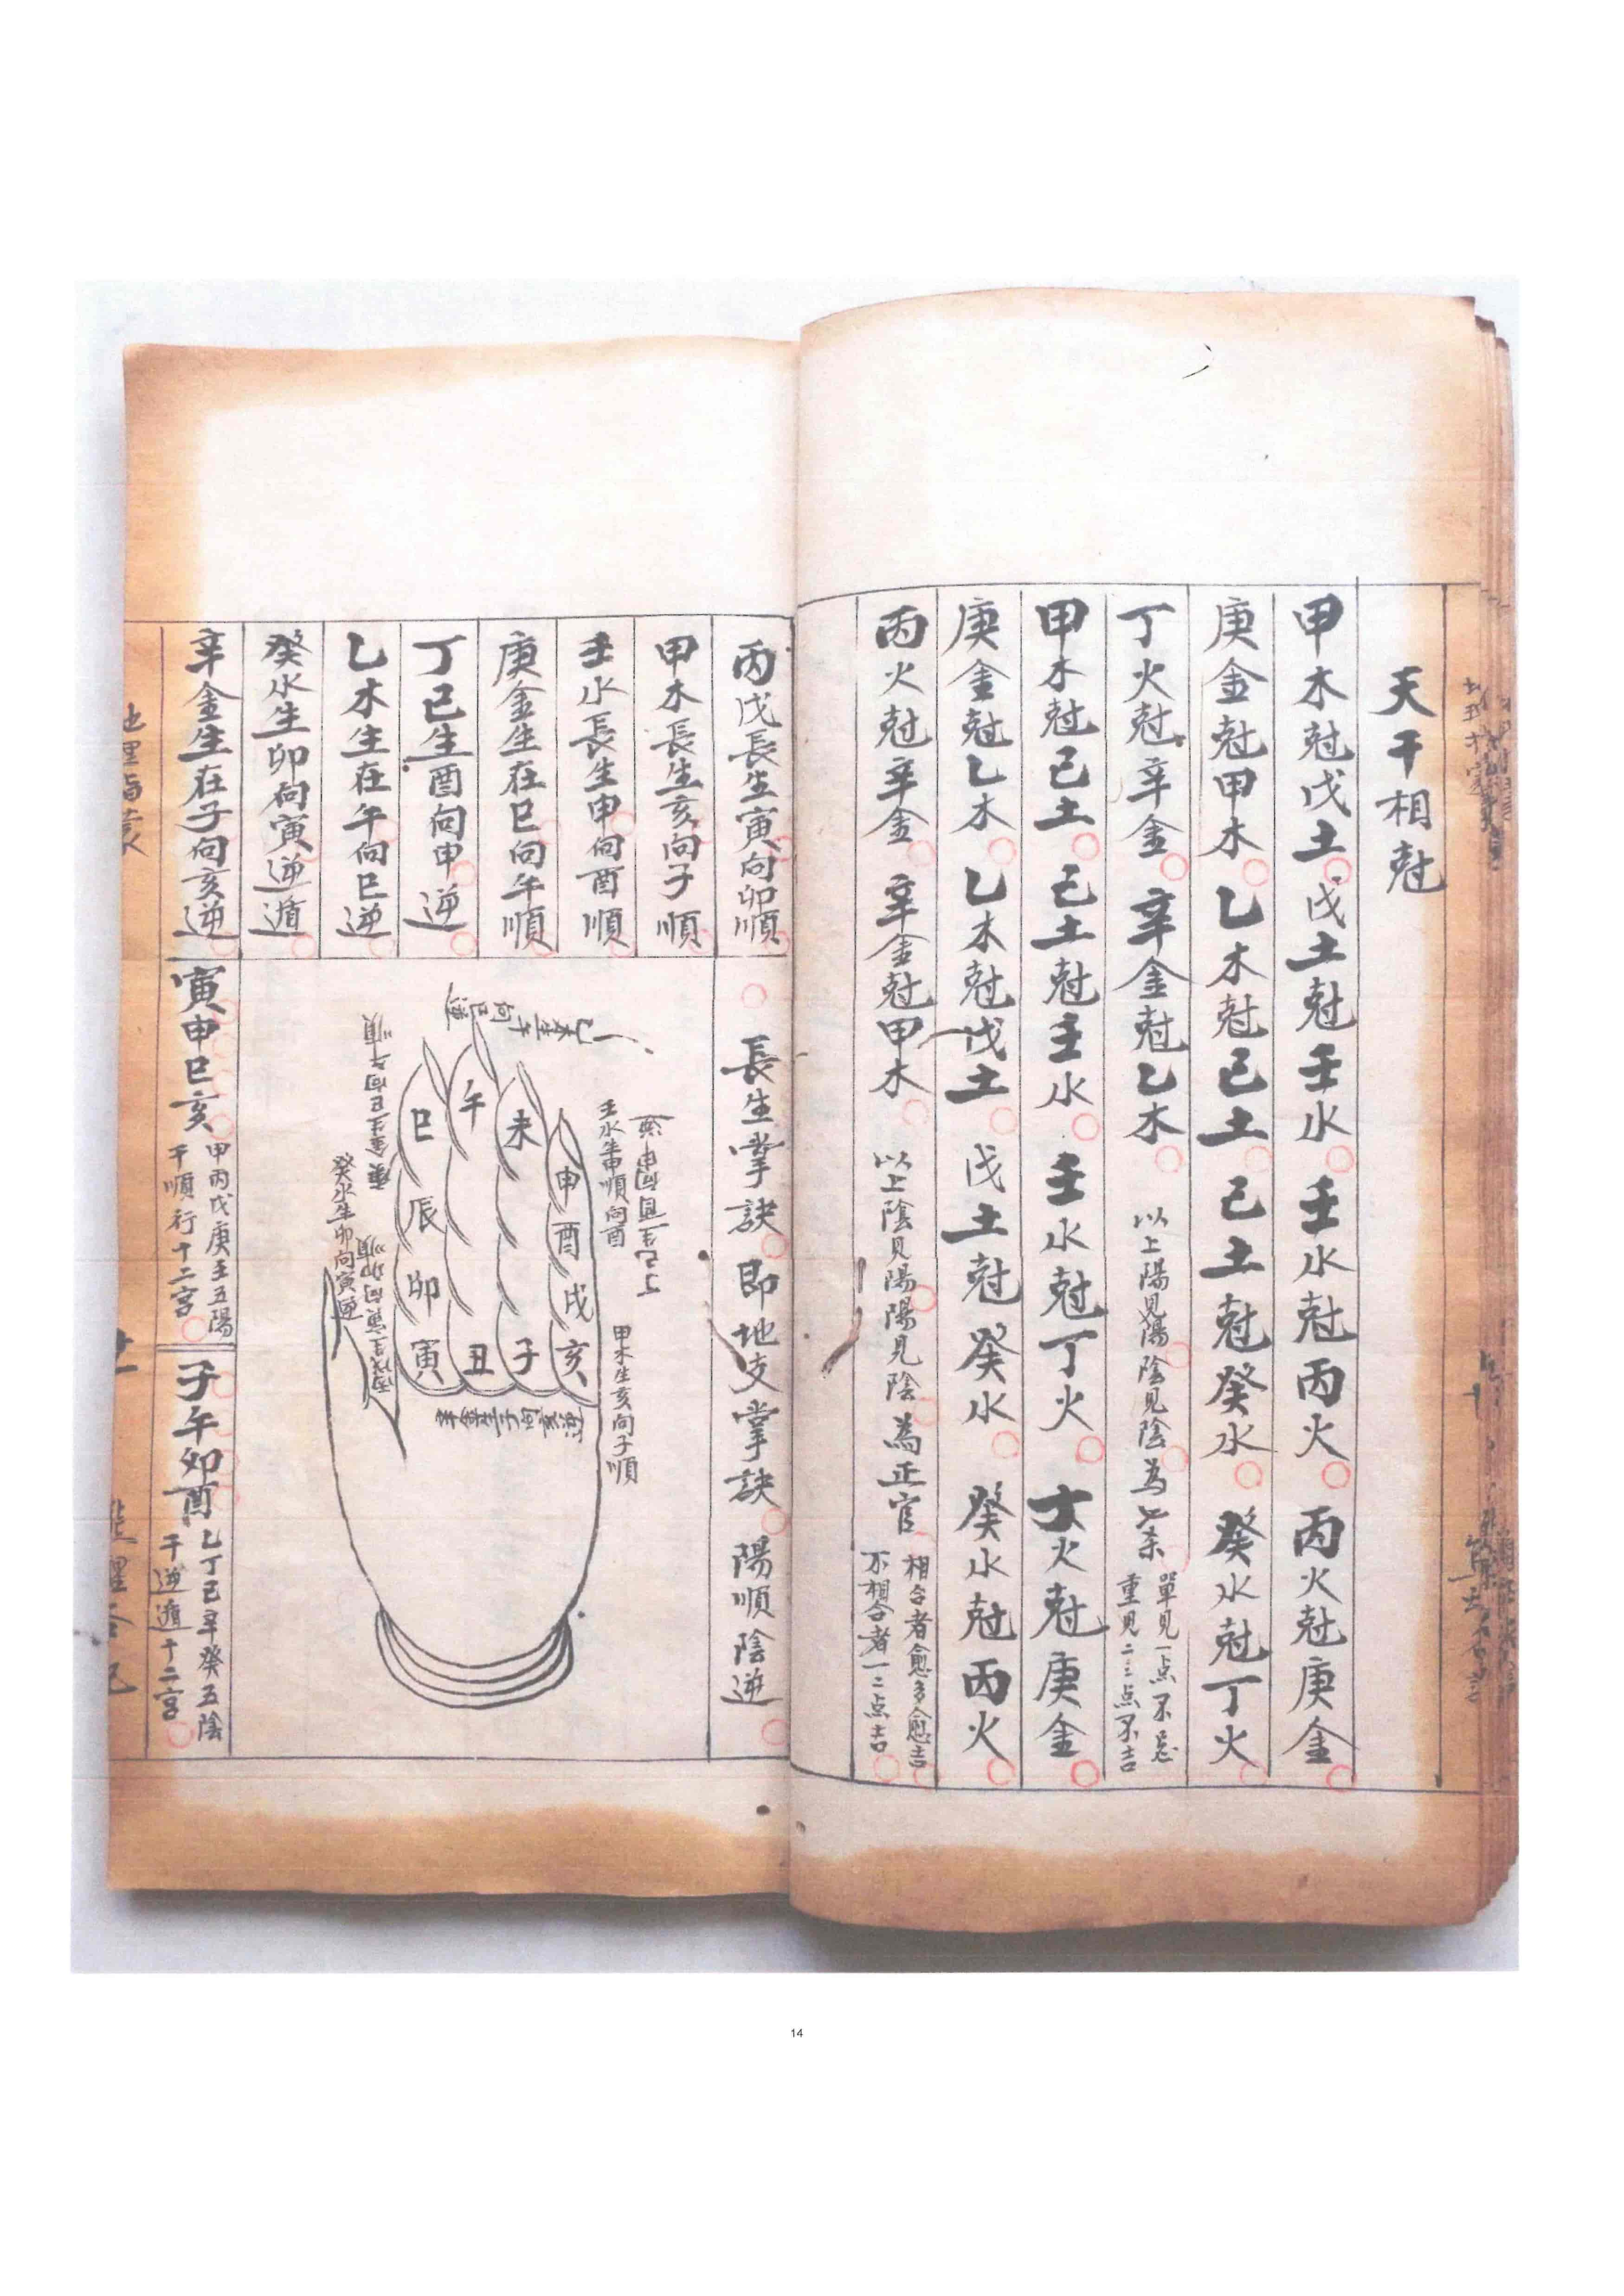 天干相尅
甲木尅戊土 戊土尅壬水 壬水尅丙火 丙火尅庚金
庚金尅甲木 乙木尅己土 己土尅癸水 癸水尅丁火
丁火尅辛金 辛金尅乙木 以上陽見陽陰見陰為七杀 單見一点不忌
重見二三点不吉
甲木尅己土 己土尅壬水 壬水尅丁火 丁火尅庚金
庚金尅乙木 乙木尅戊土 戊土尅癸水 癸水尅丙火
丙火尅辛金 辛金尅甲木 以上陰見陽陽見陰為正官 相合者愈多愈吉
不相合者一二点吉
丙戊長生寅向卯順
甲木長生亥向子順
壬水長生申向酉順
庚金生在巳向午順
丁己生酉向申逆
乙木生在午向巳逆
癸水生卯向寅逆遁
辛金生在子向亥逆
長生掌訣 即地支掌訣 陽順陰逆
乙木生午向巳逆
庚金生巳向午順
癸水生卯向寅逆
壬水生申順向酉
甲木生亥向子順
辛金生子向亥逆
巳 午 未 申
辰 酉
卯 戌
寅 丑 子 亥
寅申巳亥 甲丙戊庚壬五陽
干順行十二宮
子午卯酉 乙丁己辛癸五陰
干逆遁十二宮
14